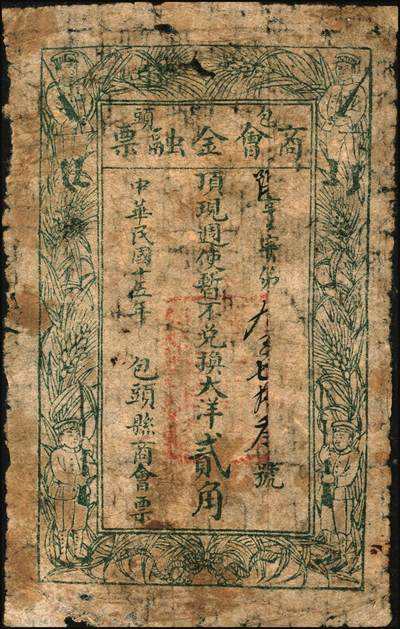 包頭
商會金融票
字第 七 號
頂現週使暫不兌換大洋貳角
中華民國十五年 包頭縣商會票